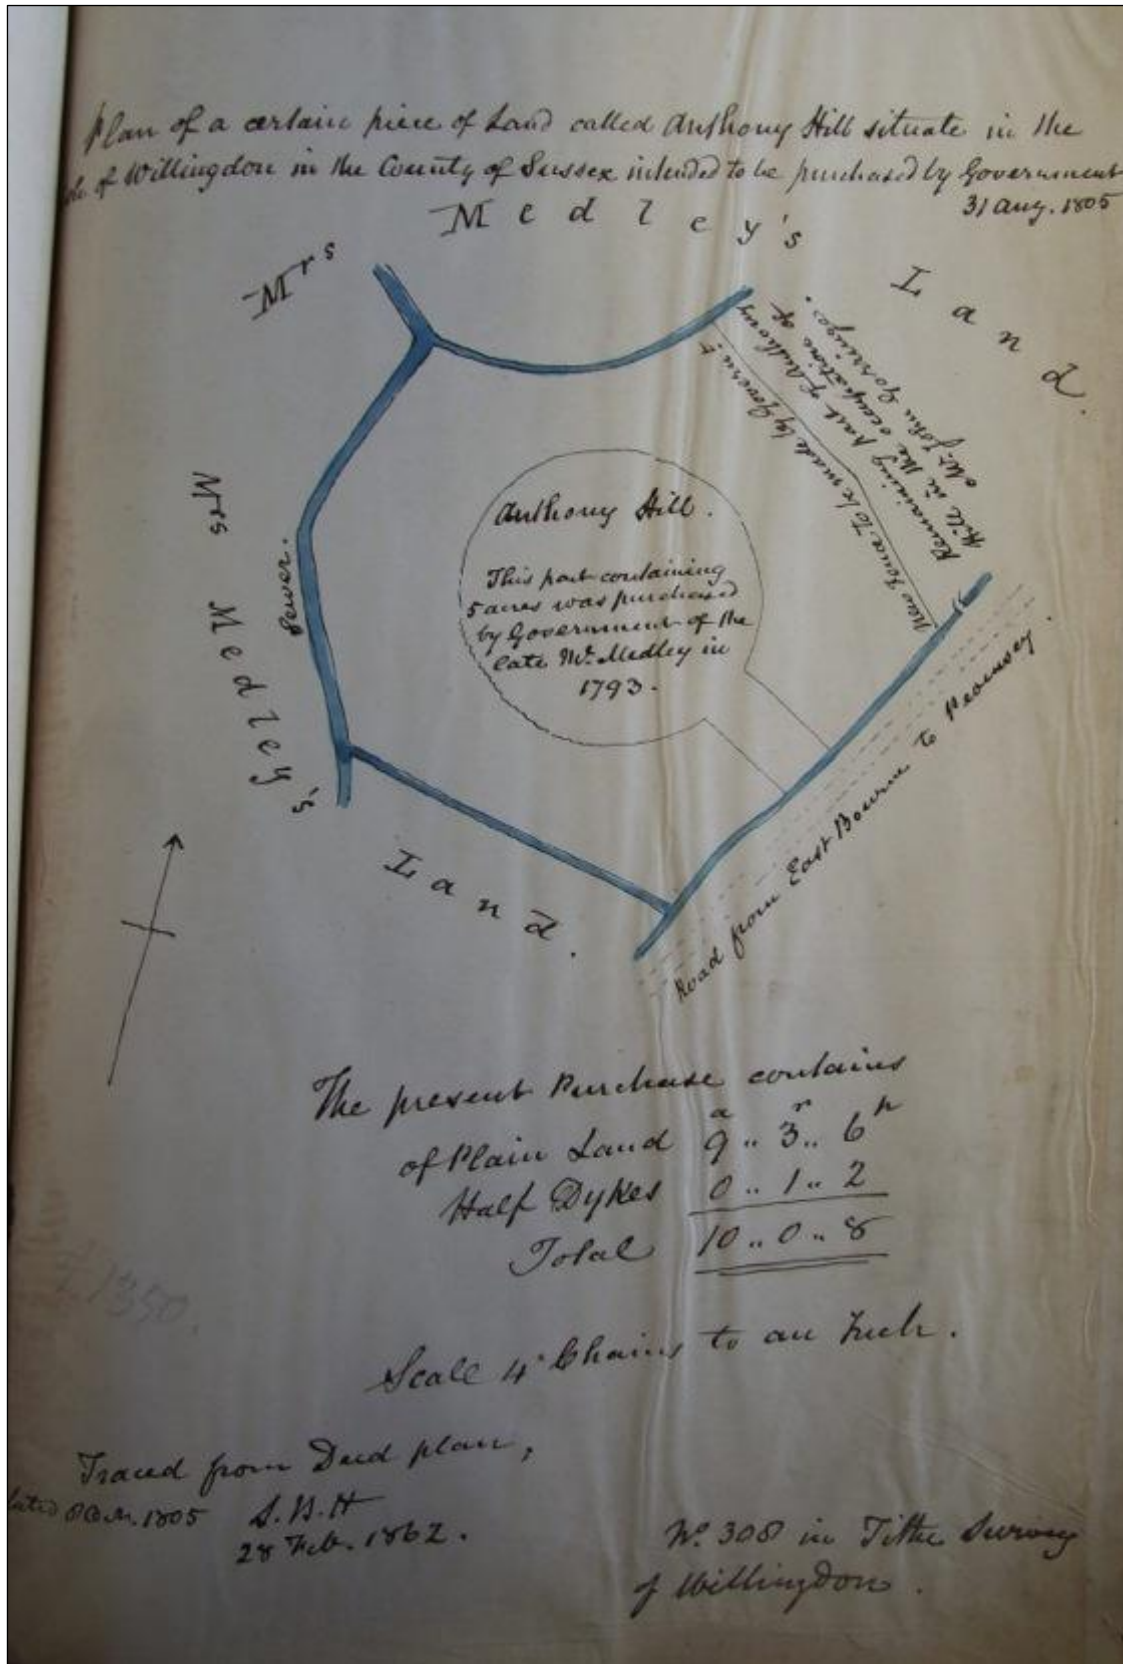 Plan of a certain piece of Land called Anthony Hill situate in the
of Willingdon in the County of Sussex intended to be purchased by Government
31 Aug. 1805
Mrs Medley's Land.
Mrs Medley's Land.
Sewer.
Anthony Hill.
This part containing
5 acres was purchased
by Government of the
late Mr. Medley in
1793.
New fence to be made by Governt.
Remaining part of Anthony
Hill in the occupation of
Mr. John Gorringe.
Road from East Bourne to Pevensey.
The present Purchase contains
a r p
of Plain Land 9 .. 3 .. 6
Half Dykes 0 .. 1 .. 2
Total 10 .. 0 .. 8
£1350.
Scale 4 Chains to an Inch.
Traced from Deed plan,
1805 S.B.H
28 Feb. 1862.
No. 308 in Tithe Survey
of Willingdon.